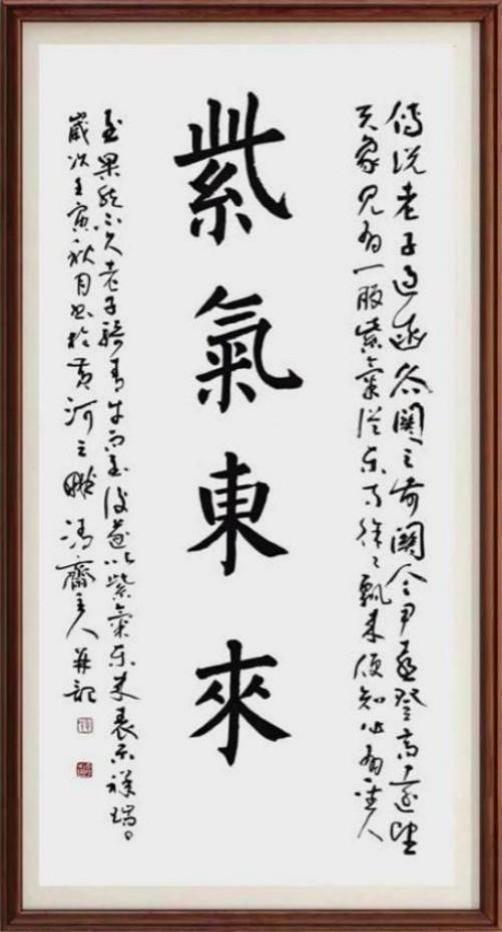 傳説老子過函谷關之前關令尹喜登高遠望
天象見有一股紫氣從東方徐々飄來便知必有聖人
紫氣東來
至果然不久老子騎青牛而至後遂以紫氣東來表示祥瑞
歲次壬寅秋月書於黄河之畔齋主人并記